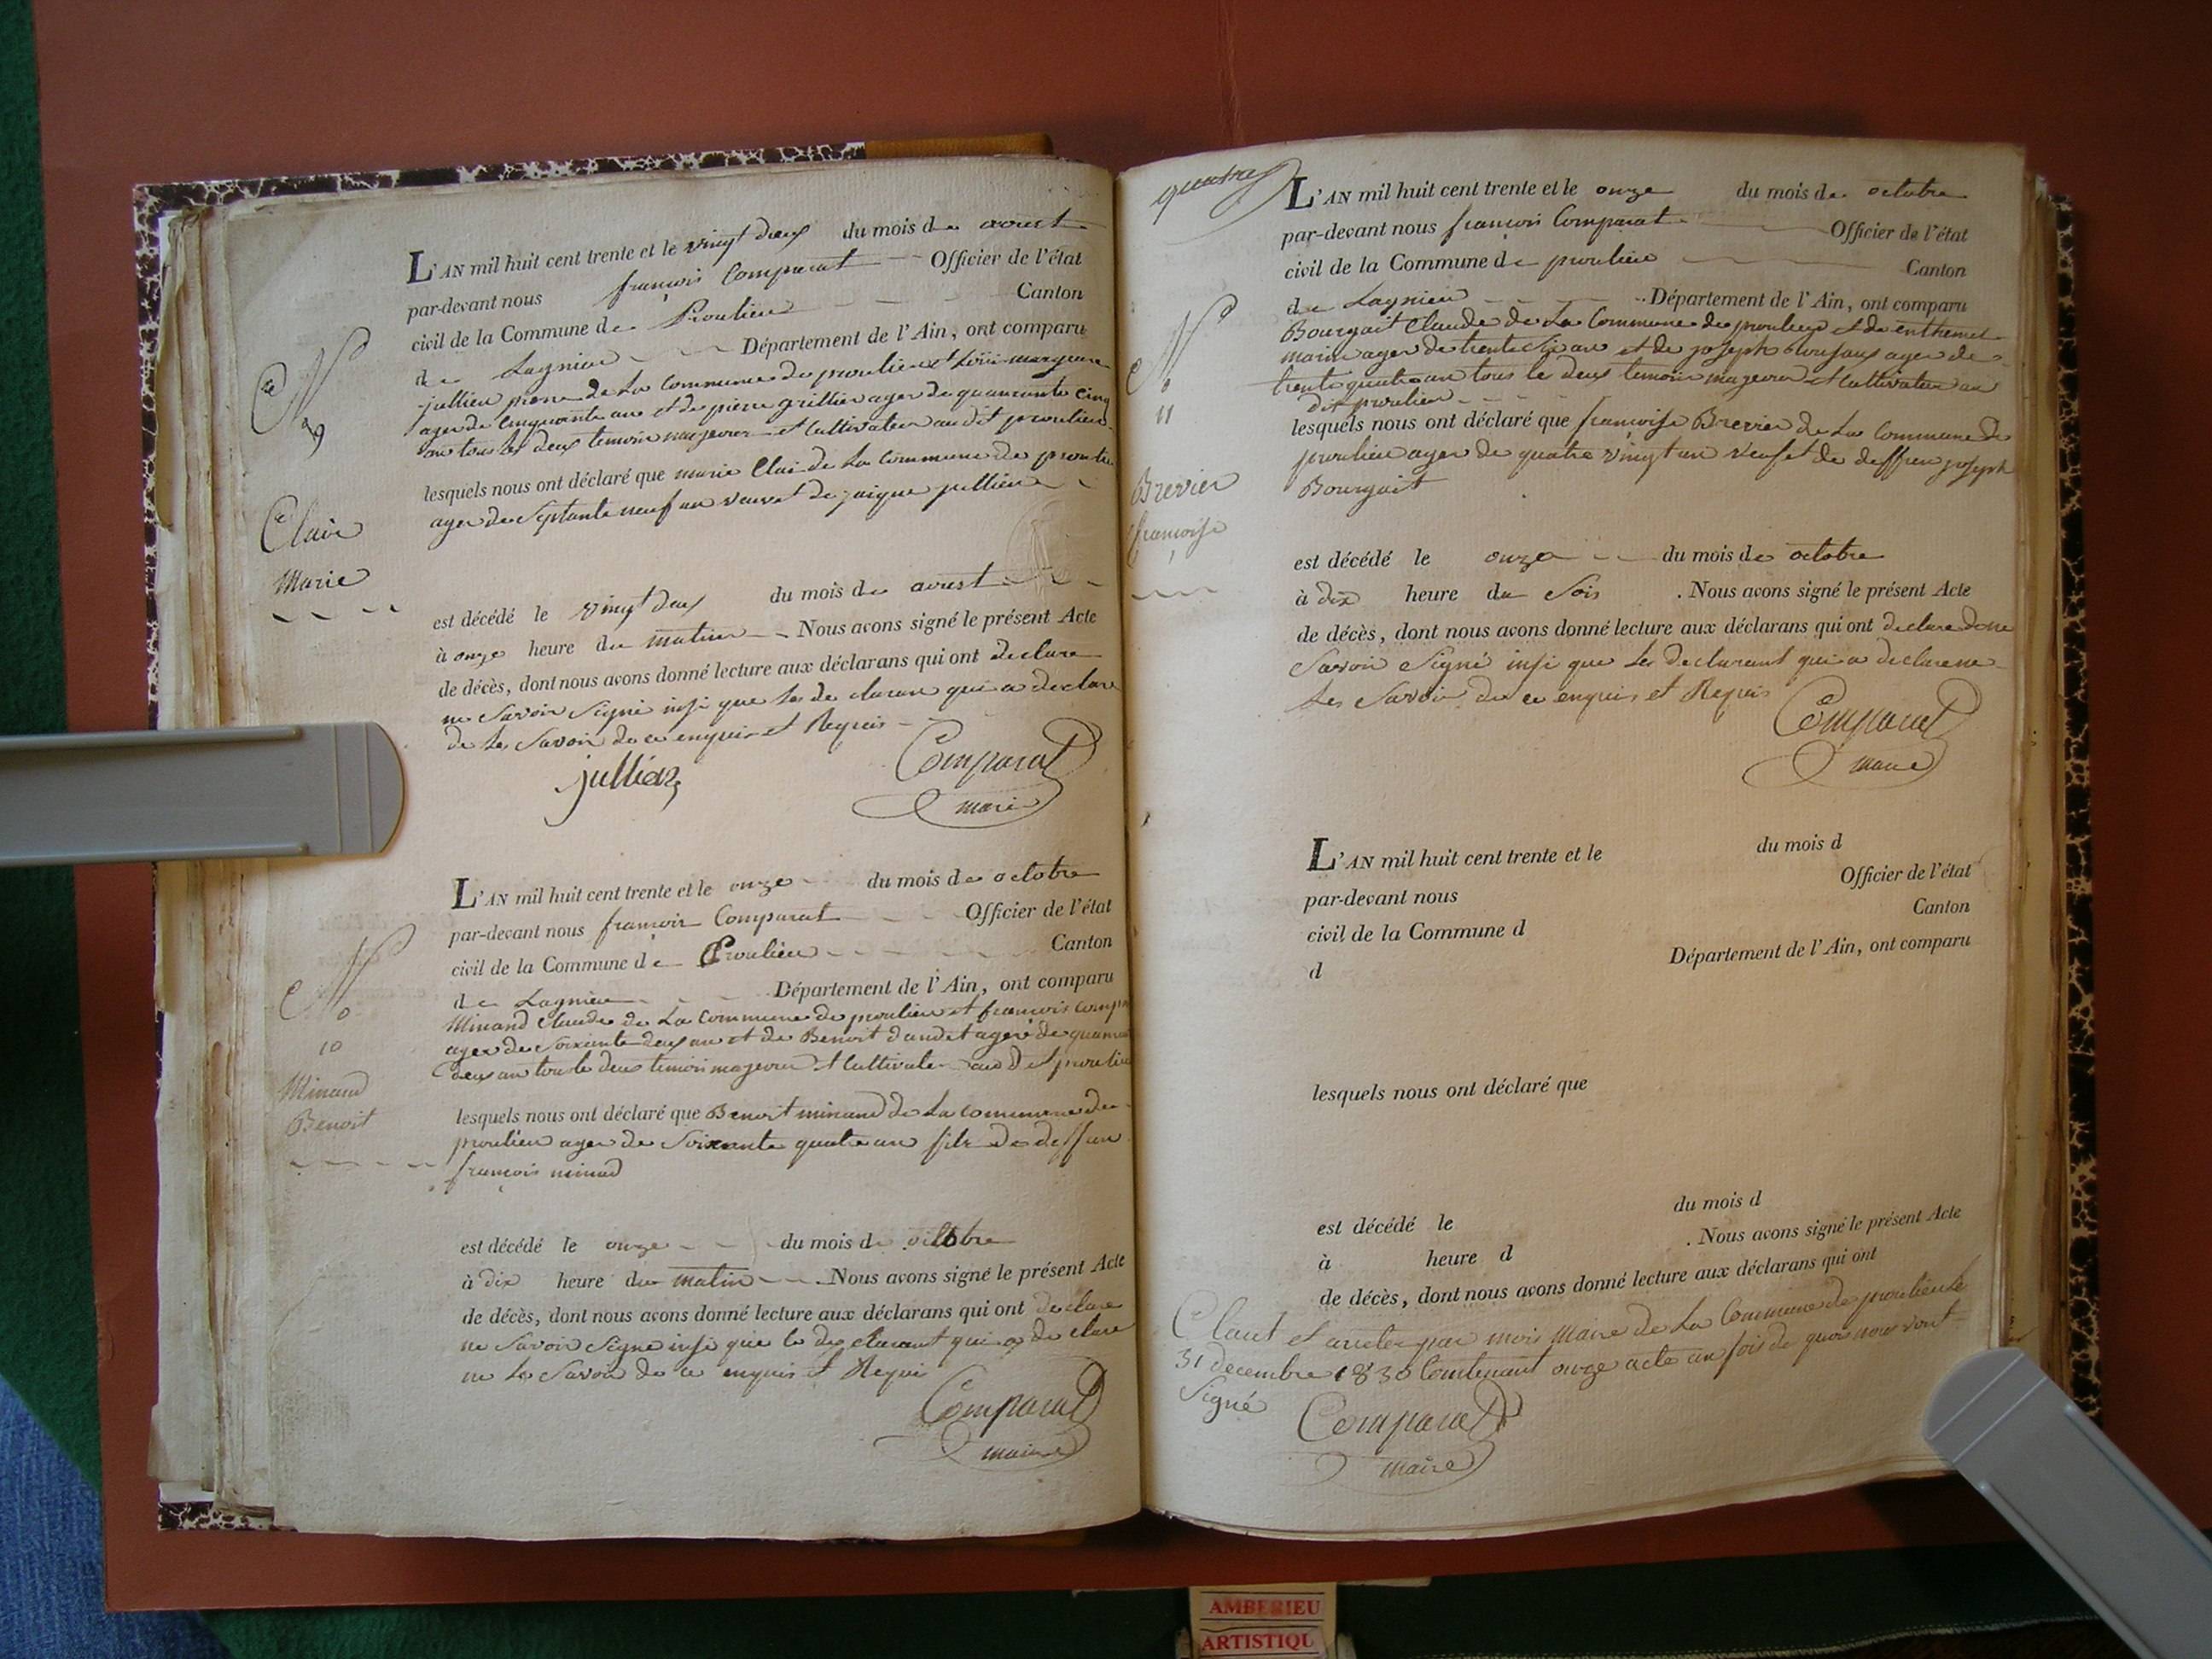 L'AN mil huit cent trente et le vingt deux du mois de aoust
par-devant nous françois Comparat Officier de l'état
civil de la Commune de Proulieu Canton
de Lagnieu Département de l'Ain, ont comparu
jullien pierre de La Commune de proulieu et
ager de Cinquante ans et de pierre grillier ager de quarante Cinq
ans tous les deux temoin majeures et Cultivateur au dit proulieu
N°
9
Clair
Marie
lesquels nous ont déclaré que marie Clair de La Commune de proulieu
ager de Septante neuf an veuve de jaique jullien
est décédé le vingt deux du mois de aoust
à onze heure du matin Nous avons signé le présent Acte
de décès, dont nous avons donné lecture aux déclarans qui ont declare
ne Savoir Signé insi que les declaran qui a declare
de Les Savoir de ce enquis et Requis
jullien
Comparat
maire
L'AN mil huit cent trente et le onze du mois de octobre
par-devant nous françois Comparat Officier de l'état
civil de la Commune de Proulieu Canton
de Lagnieu Département de l'Ain, ont comparu
Minand Claude de La Commune de proulieu et françois
ager de Soixante deux an et de Benoit dandet ager de
deux an tous le deux temoin majeur et Cultivateur au dit proulieu
N°
10
Minand
Benoit
lesquels nous ont déclaré que Benoit minand de La commune de
proulieu ager de Soixante quatre an fils de deffun
françois minad
est décédé le onze du mois de octobre
à dix heure du matin Nous avons signé le présent Acte
de décès, dont nous avons donné lecture aux déclarans qui ont declare
ne Savoir Signe insi que le declarant qui a declare
ne Le Savoir de ce enquis et Requis
Comparat
maire
quatre
L'AN mil huit cent trente et le onze du mois de octobre
par-devant nous françois Comparat Officier de l'état
civil de la Commune de proulieu Canton
de Lagnieu Département de l'Ain, ont comparu
Bourgait Claude de La Commune de proulieu et de
ager de trente Six an et de joseph ager de
trente quatre an tous le deux temoin majeur et Cultivateur au
dit proulieu
N°
11
Brevier
françoise
lesquels nous ont déclaré que françoise Brevier de La Commune de
proulieu ager de quatre vingt un veuf et de deffun joseph
Bourgait
est décédé le onze du mois de octobre
à dix heure du Soir . Nous avons signé le présent Acte
de décès, dont nous avons donné lecture aux déclarans qui ont declare de ne
Savoir Signé insi que Les declarant qui a declare ne
Les Savoir de ce enquis et Requis
Comparat
maire
L'AN mil huit cent trente et le du mois d
par-devant nous Officier de l'état
civil de la Commune d Canton
d Département de l'Ain, ont comparu
lesquels nous ont déclaré que
est décédé le du mois d
à heure d . Nous avons signé le présent Acte
de décès, dont nous avons donné lecture aux déclarans qui ont
Claut et arreter par mois Maire de La Commune de proulieu Le
31 decembre 1830 Contenant onze acte en fois de quoi nous
Signé
Comparat
maire
AMBERIEU
ARTISTIQU